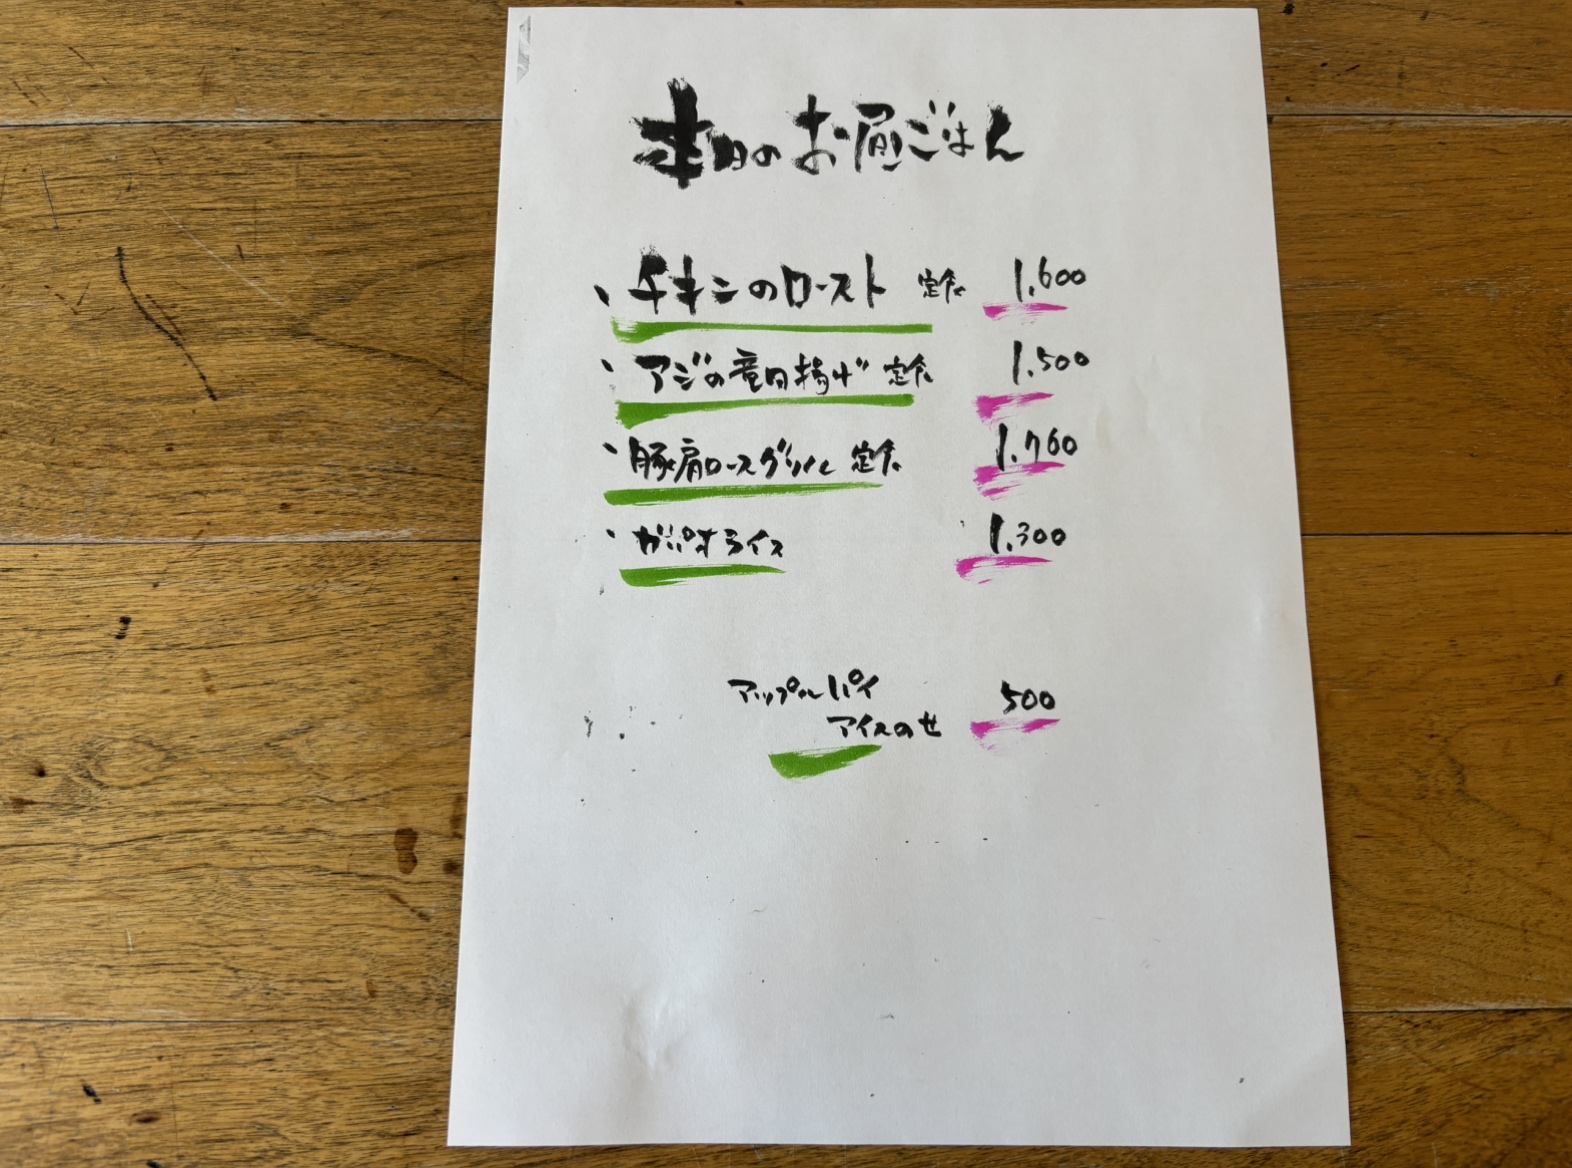 本日のお昼ごはん
、チキンのロースト 定食 1.600
、アジの竜田揚げ 定食 1.500
、豚肩ロースグリル 定食 1.760
、ガパオライス 1.300
アップルパイ
アイスのせ 500